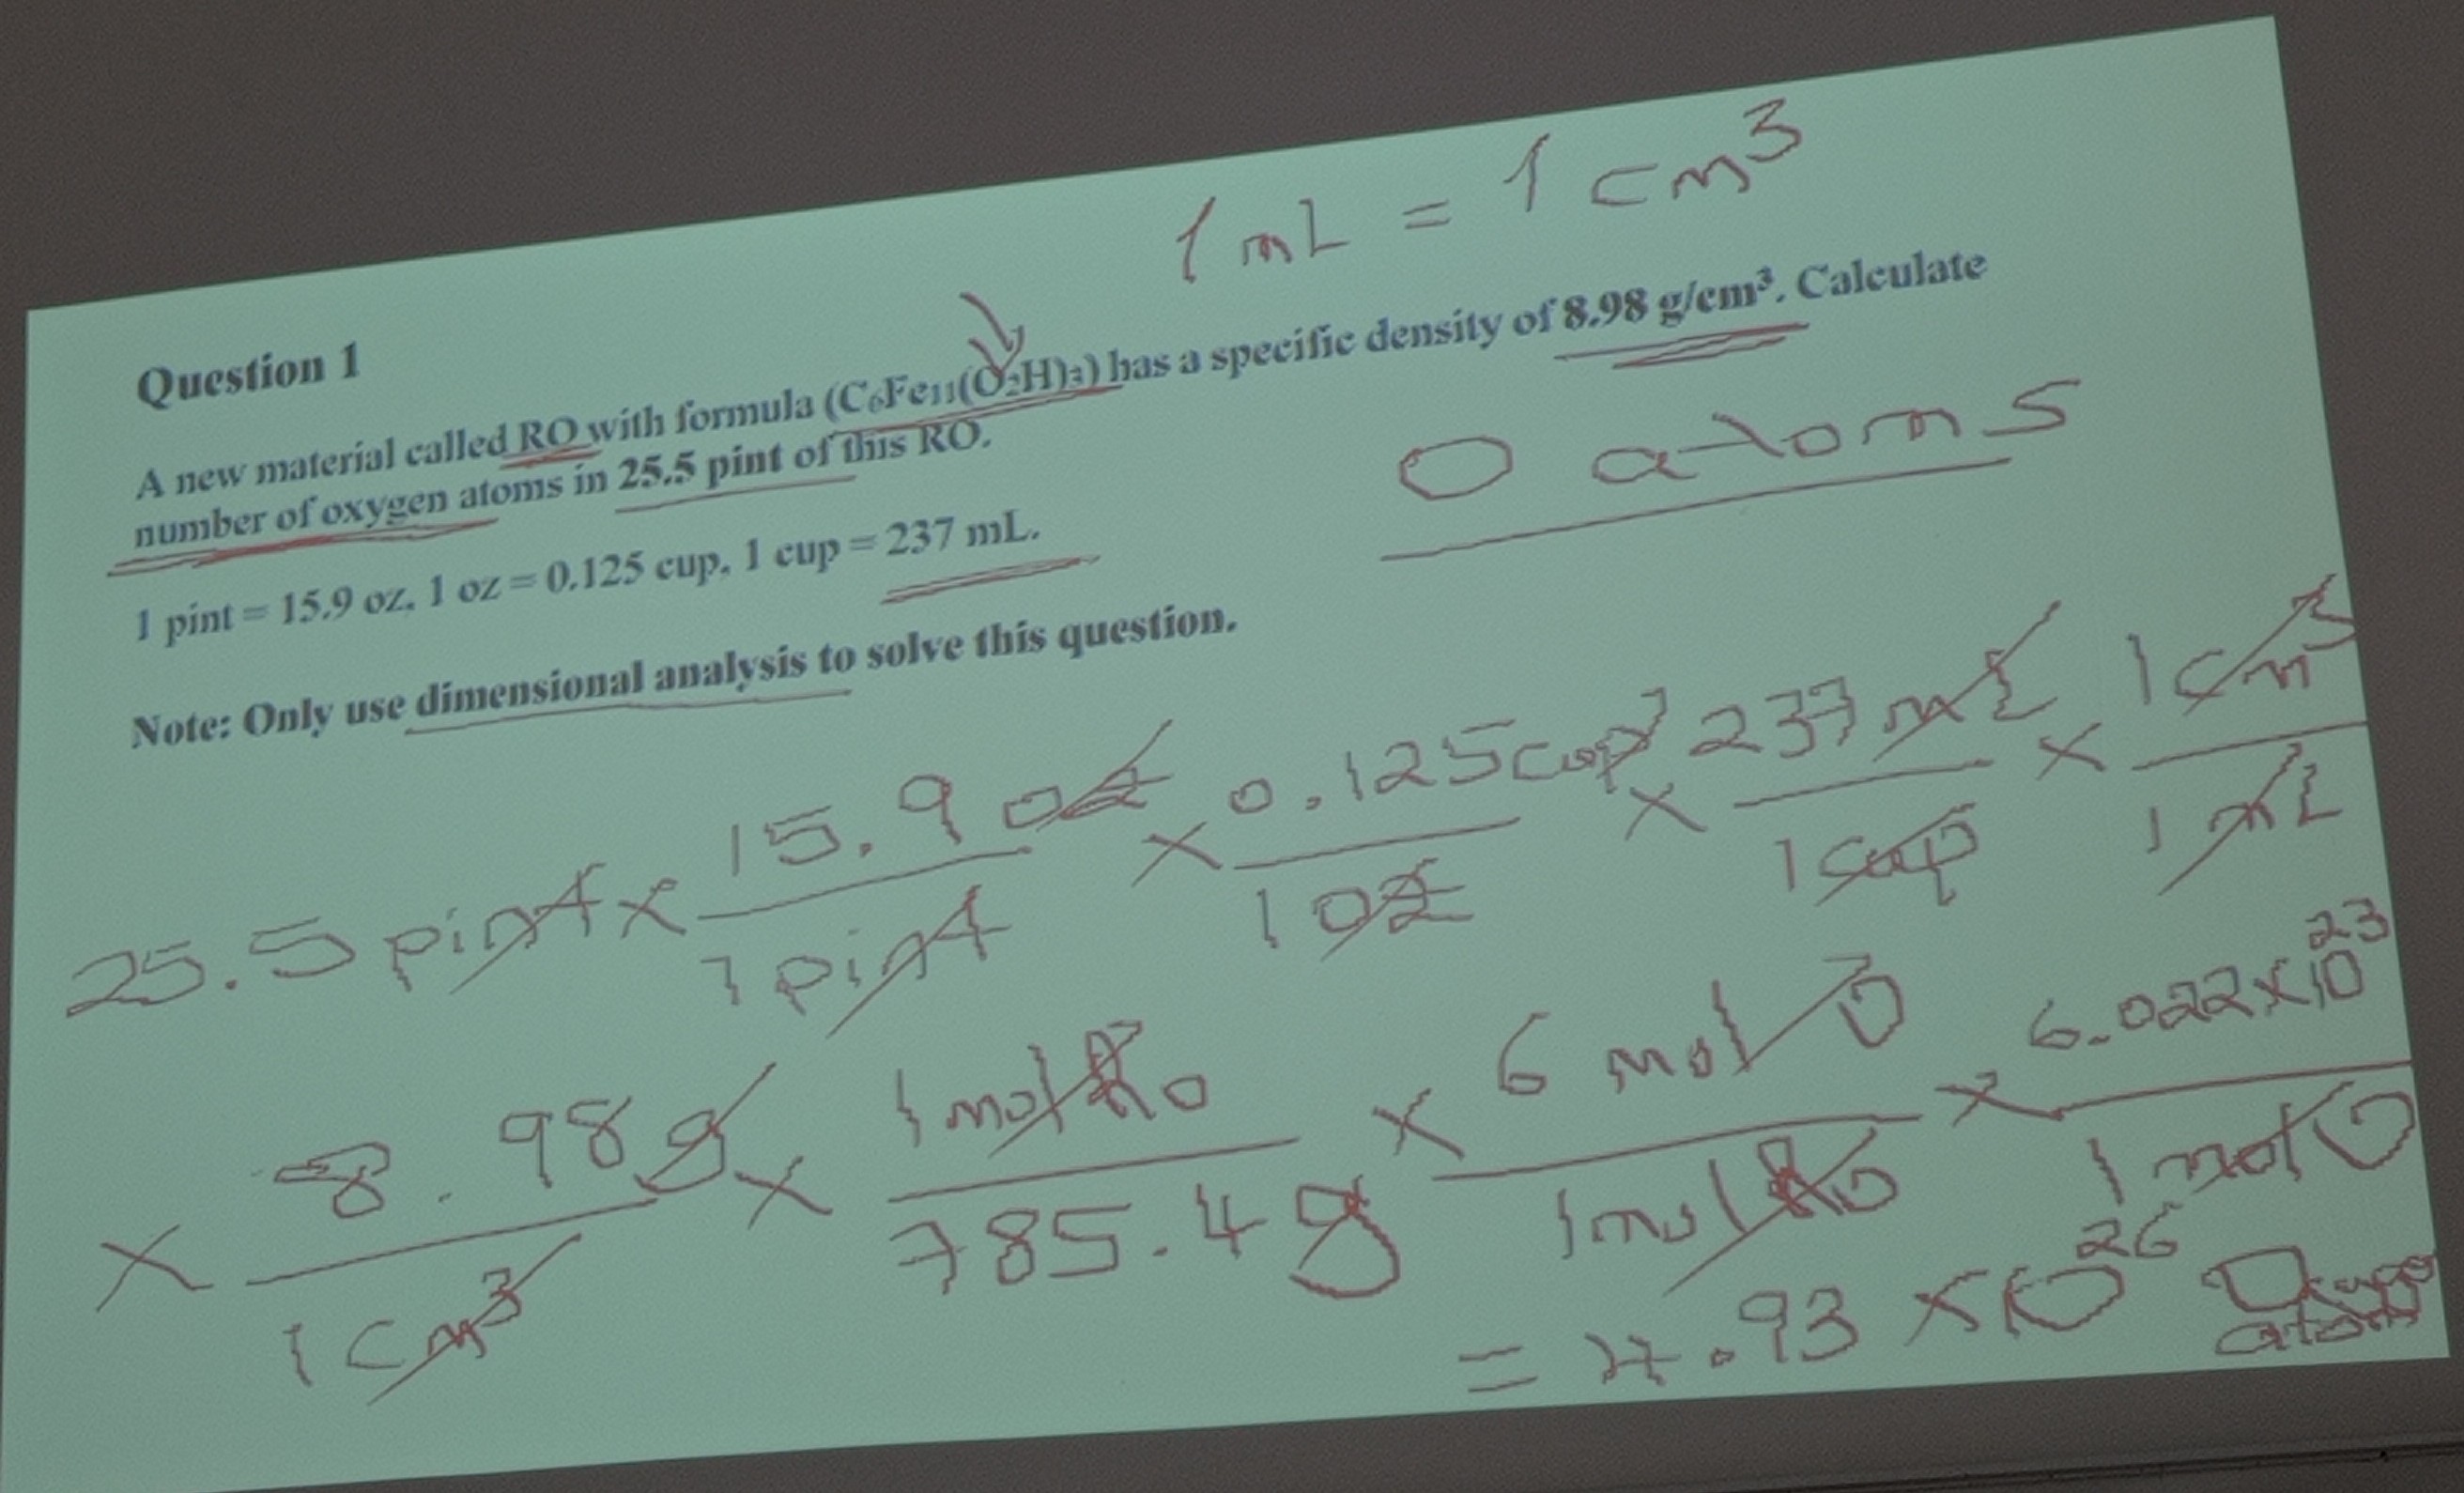 1 mL = 1 cm³
Question 1
A new material called RO with formula (C₆Fe₁₁(O₂H)₃) has a specific density of 8.98 g/cm³. Calculate
number of oxygen atoms in 25.5 pint of this RO.
O atoms
1 pint = 15.9 oz, 1 oz = 0.125 cup, 1 cup = 237 mL.
Note: Only use dimensional analysis to solve this question.
25.5 pint x 15.9 oz / 1 pint x 0.125 cup / 1 oz x 237 mL / 1 cup x 1 cm³ / 1 mL
x 8.98 g / 1 cm³ x 1 mol RO / 785.4 g x 6 mol O / 1 mol RO x 6.022 x 10²³ / 1 mol O
= 4.93 x 10²⁶ Oxygen
atoms